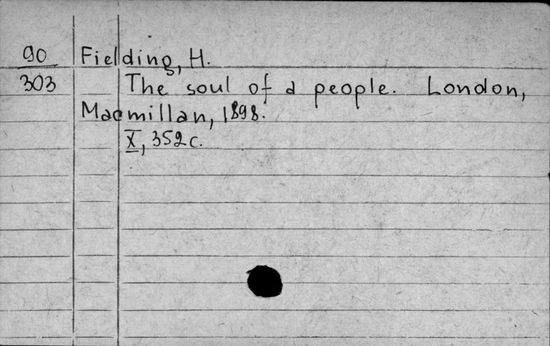 90 Fielding, H.
303 The soul of a people. London,
Macmillan, 1898.
X, 352 c.